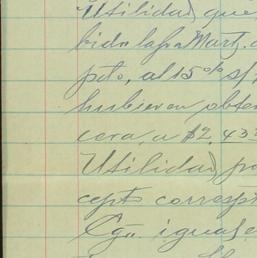 Utilidad, que
bido la Sra Mart.
pto, al 15% s/
hubieren obten
cera, a $2,433
Utilidad, po
cepto corresp
Cya. iguale